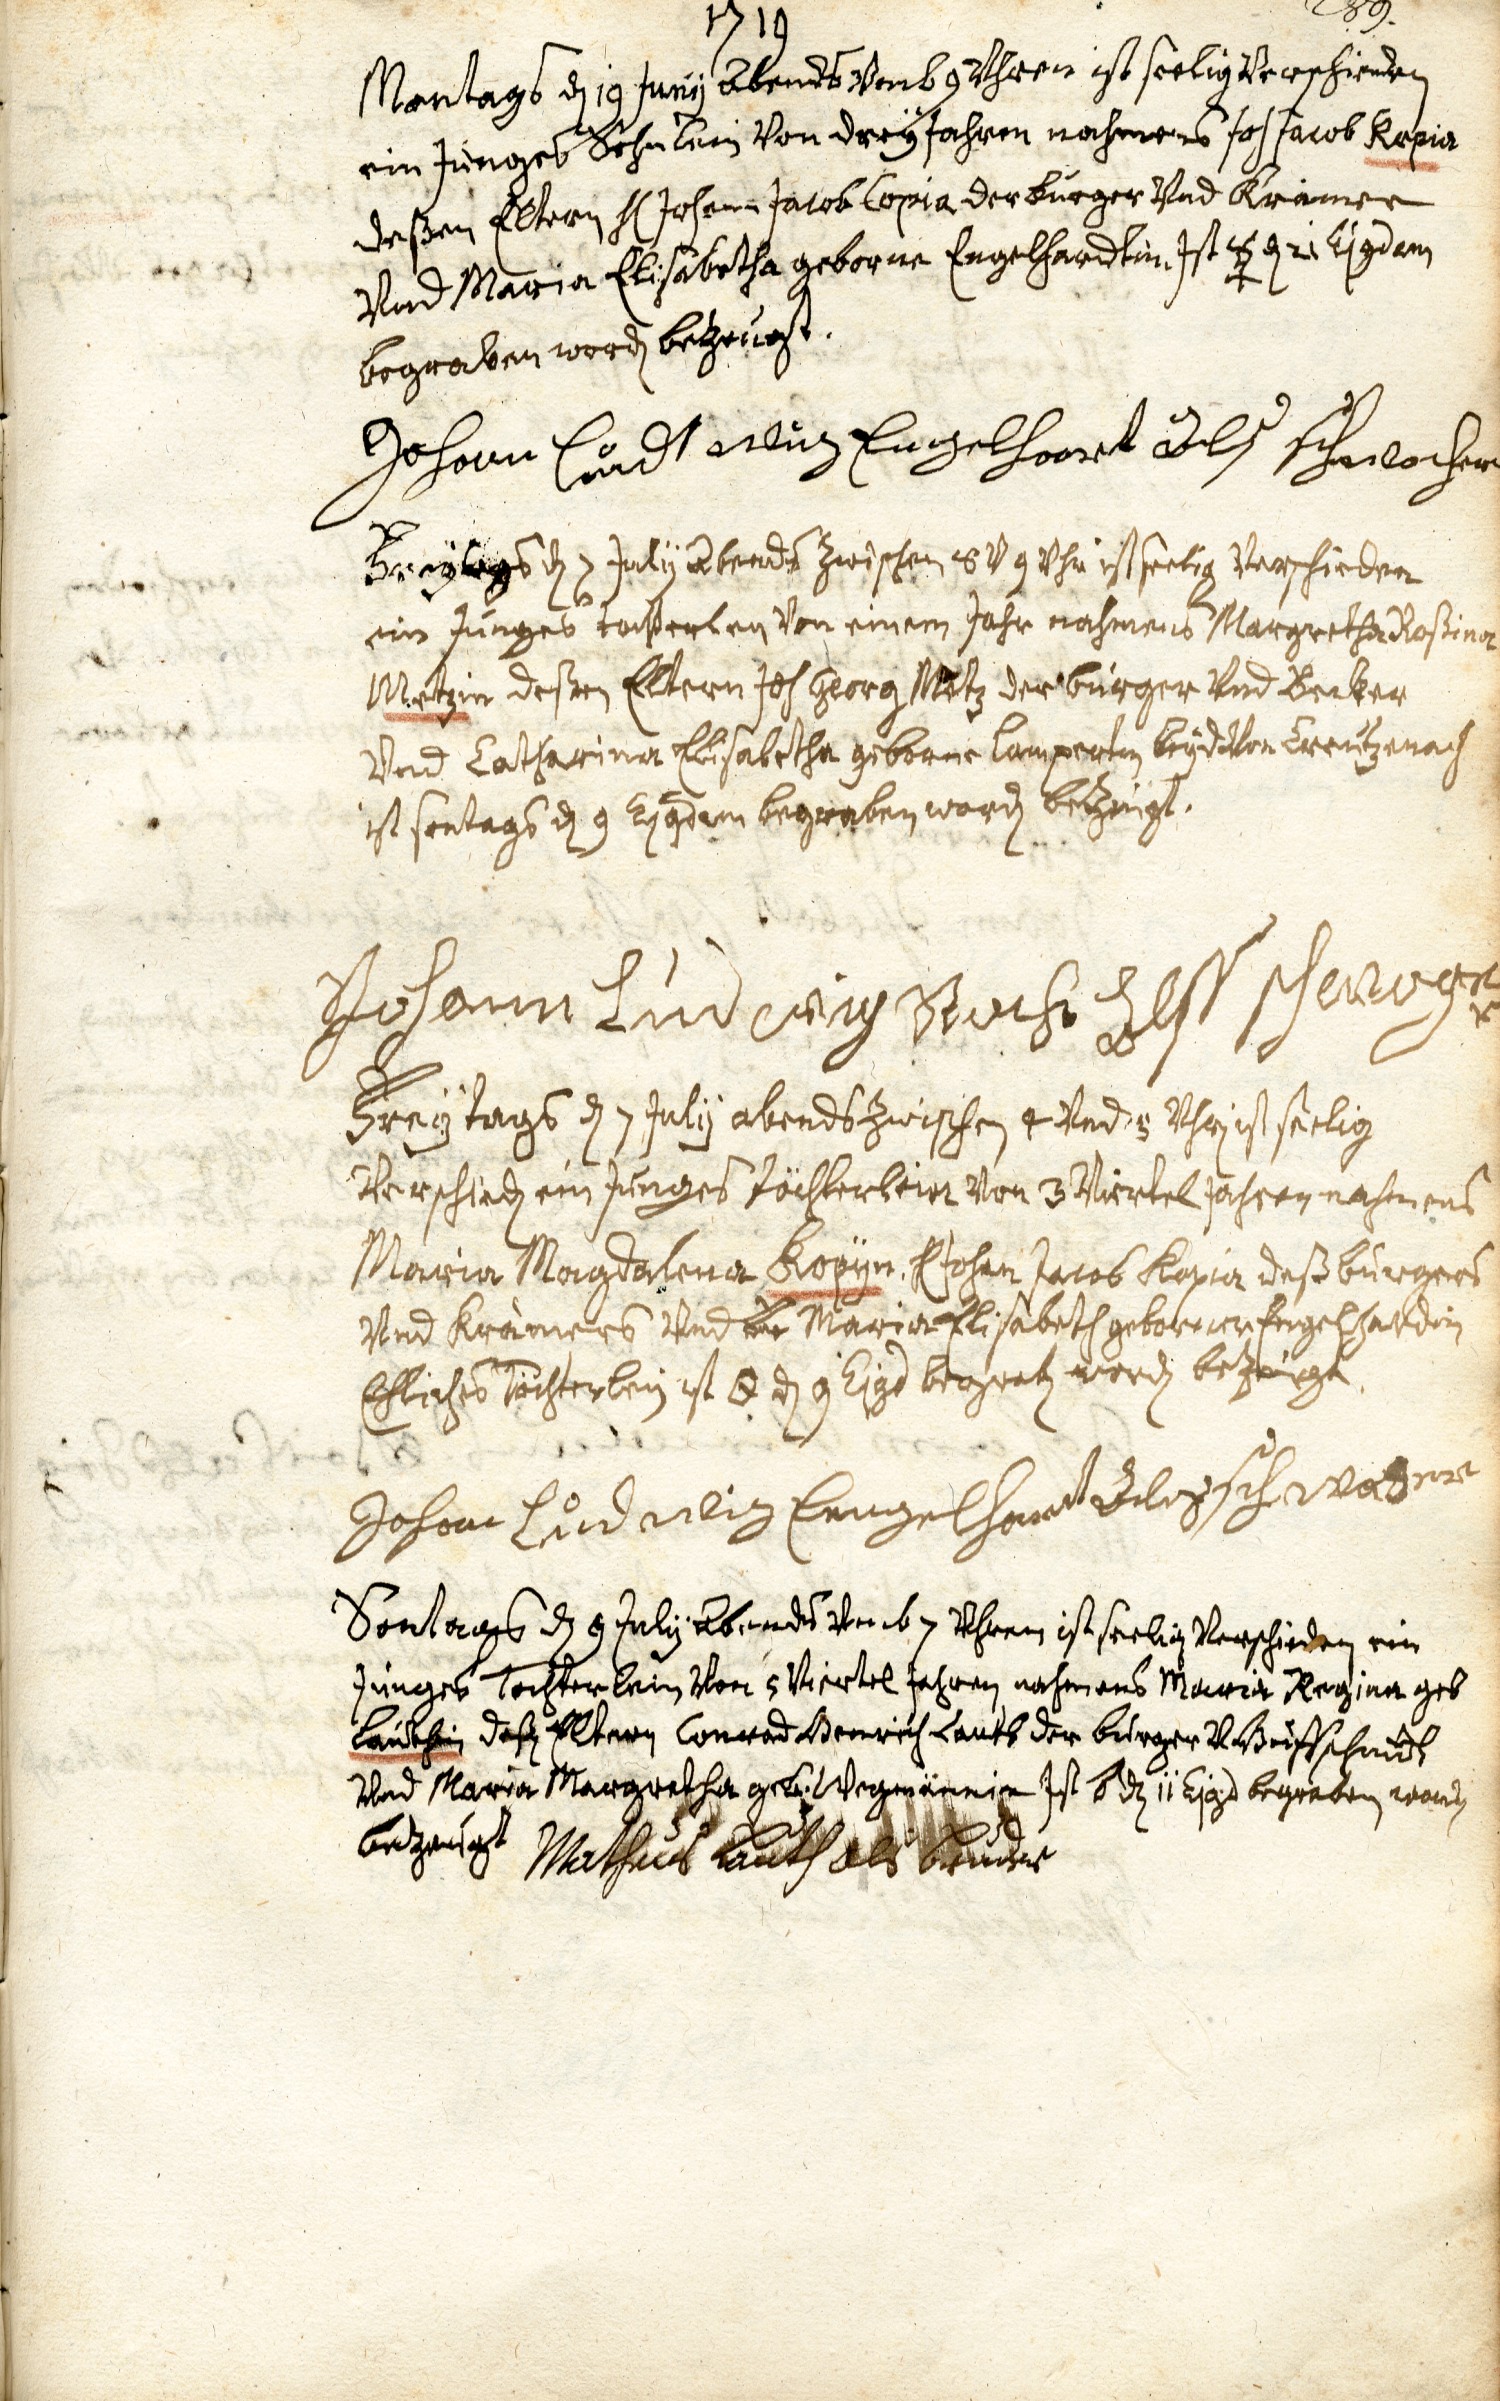 1719
289.
Montags d 19 Junij Abends Umb 9 Uhren ist seelig Verschieden
ein Junges Sohnlein Von dreÿ Jahren nahmens Joh Jacob Kopia
deßen Eltern H Johann Jacob Copia der burger Und Krämer
Und Maria Elisabetha geborne Engelhardtin Ist ☿ d 21 Ejgdem
begraben word betzeugt.
Johan Ludtwig Engelhart Als schwocher
Freÿtags d 7 Julij Abends Zwischen 8 U 9 Uhr ist seelig Verschieden
ein Junges tochterlen Von einem Jahr nahmens Margretha Rosina
Metzin deßen Eltern Joh Georg Metz der burger Und Becker
Und Catharina Elisabetha geborne Lamperten beÿd Von Creutzenach
ist sontags d 9 Ejgdem begraben word betzeugt.
Johann Ludwig Alß schwoger
Freÿtags d 7 Julij abends Zwischen 4 Und 5 Uhr ist seelig
Verschied ein Junges töchterlein Von 3 Viertel Jahren nahmens
Maria Magdalena Kopÿin, H Johan Jacob Kopia deß burgers
Und Krämers Und Maria Elisabeth geborner Engelhardin
Ehliches Töchterlein ist d 9 Ejgd begrab word betzeugt.
Johan Ludwig Engelhart Als schwager
Sontags d 9 Julij Abends Umb 7 Uhren ist seelig Verschieden ein
Junges Tochterlein Von 5 Viertel Jahren nahmens Maria Regina geb
Lauthin deß Eltern Conrad Henrich Lauth der burger U Hufschmidt
Und Maria Margretha geb. Wegmännin Ist d 11 Ejgd begraben word
betzeugt Matheus Lauth als bruder